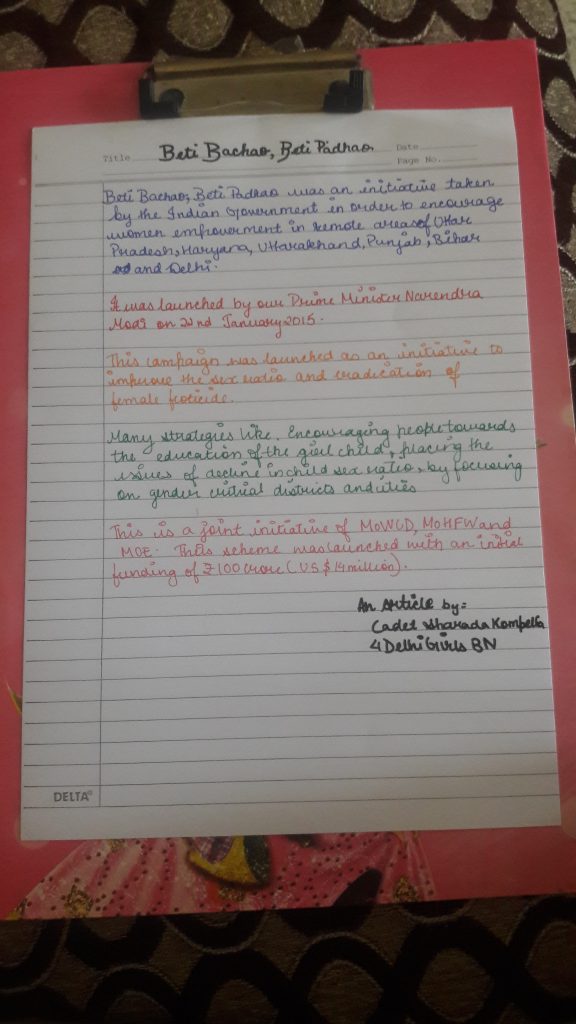 Title Beti Bachao, Beti Padhao Date
Page No.
Beti Bachao, Beti Padhao was an initiative taken
by the Indian Government in order to encourage
women empowerment in remote areas of Uttar
Pradesh, Haryana, Uttarakhand, Punjab, Bihar
and Delhi.
It was launched by our Prime Minister Narendra
Modi on 22nd January 2015.
This campaign was launched as an initiative to
improve the sex ratio and eradication of
female foeticide.
Many strategies like. Encouraging people towards
the education of the girl child, placing the
issues of decline in child sex ratio, by focusing
on gender critical districts and cities
This is a joint initiative of MoWCD, MOHFW and
MOE. This scheme was launched with an initial
funding of ₹100 crore (US $ 14 million).
An Article by:-
Cadet Sharada Kompella
4 Delhi Girls BN
DELTA®